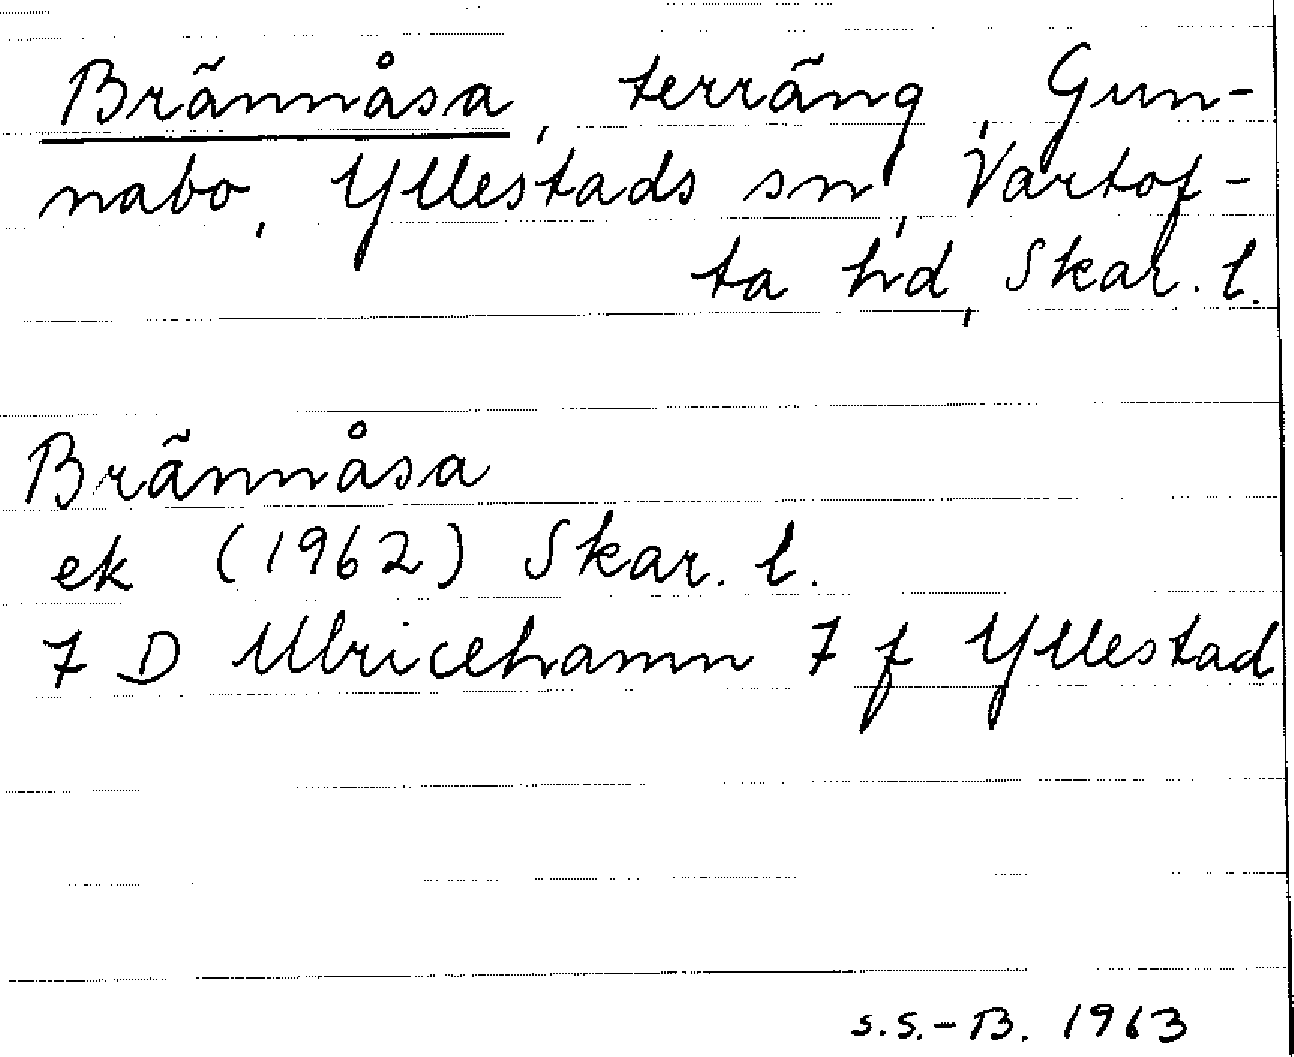 Brännåsa, terräng, Gun-
nabo, Yllestads sn, Vartof-
ta hd, Skar. l.
Brännåsa
ek (1962) Skar. l.
7 D Ulricehamn 7 f Yllestad
S.S.-B. 1963